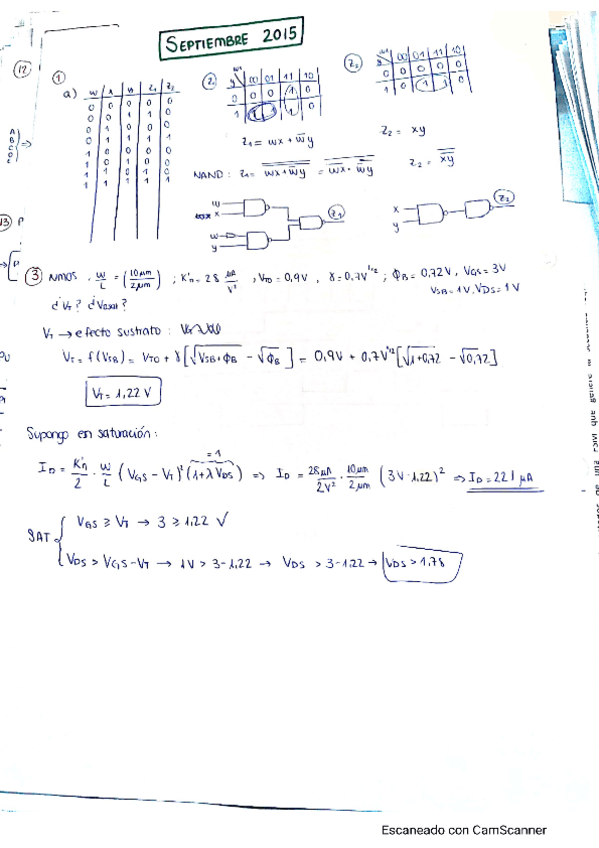 SEPTIEMBRE 2015
12
1
a) W X Y Z₁ Z₂
0 0 0 0 0
0 0 1 1 0
0 1 0 0 0
0 1 1 1 1
1 0 0 0 0
1 0 1 0 0
1 1 0 1 0
1 1 1 1 1
A
B
C
D
Z₁ 00 01 11 10
0 0 0 1 0
1 1 1 1 0
Z₁ = wx + w̅y
Z₂ 00 01 11 10
0 0 0 0 0
1 0 1 1 0
Z₂ = xy
NAND: Z₁ =
Z₂ =
w
x
w
y
Z₁
x
y
Z₂
13 P
3 NMOS, W/L = (10μm/2μm); K'n = 28 μA/V², VTO = 0,9V, γ = 0.7V^1/2; ΦB = 0,72V, VGS = 3V
VSB = 1V, VDS = 1V
¿VT? ¿VDSAT?
VT → efecto sustrato:
VT = f(VSB) = VTO + γ[√(VSB+ΦB) − √ΦB] = 0,9V + 0,7V^1/2 [√(1+0,72) − √(0,72)]
VT = 1,22 V
Supongo en saturación:
= 1
ID = K'n/2 · W/L (VGS − VT)² (1+λVDS) => ID = 28μA/2V² · 10μm/2μm (3V·1.22)² => ID = 221 μA
SAT { VGS ≥ VT → 3 ≥ 1.22 √
VDS > VGS−VT → 1V > 3−1.22 → VDS > 3−1.22 → VDS > 1.78
Escaneado con CamScanner